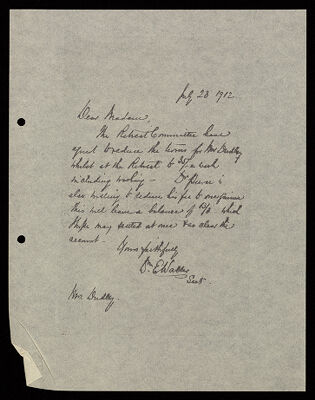 July 23 1912.
Dear Madam,
The Retreat Committee have
agreed to reduce the terms for Mr Dudley
whilst at the Retreat to a week
including washing — Dr Pierce is
also willing to reduce his fee to one guinea
this will leave a balance of which
I hope may be settled at once & so clear the
account.
Yours faithfully
Wm E Waller
Sect.
Mrs. Dudley.